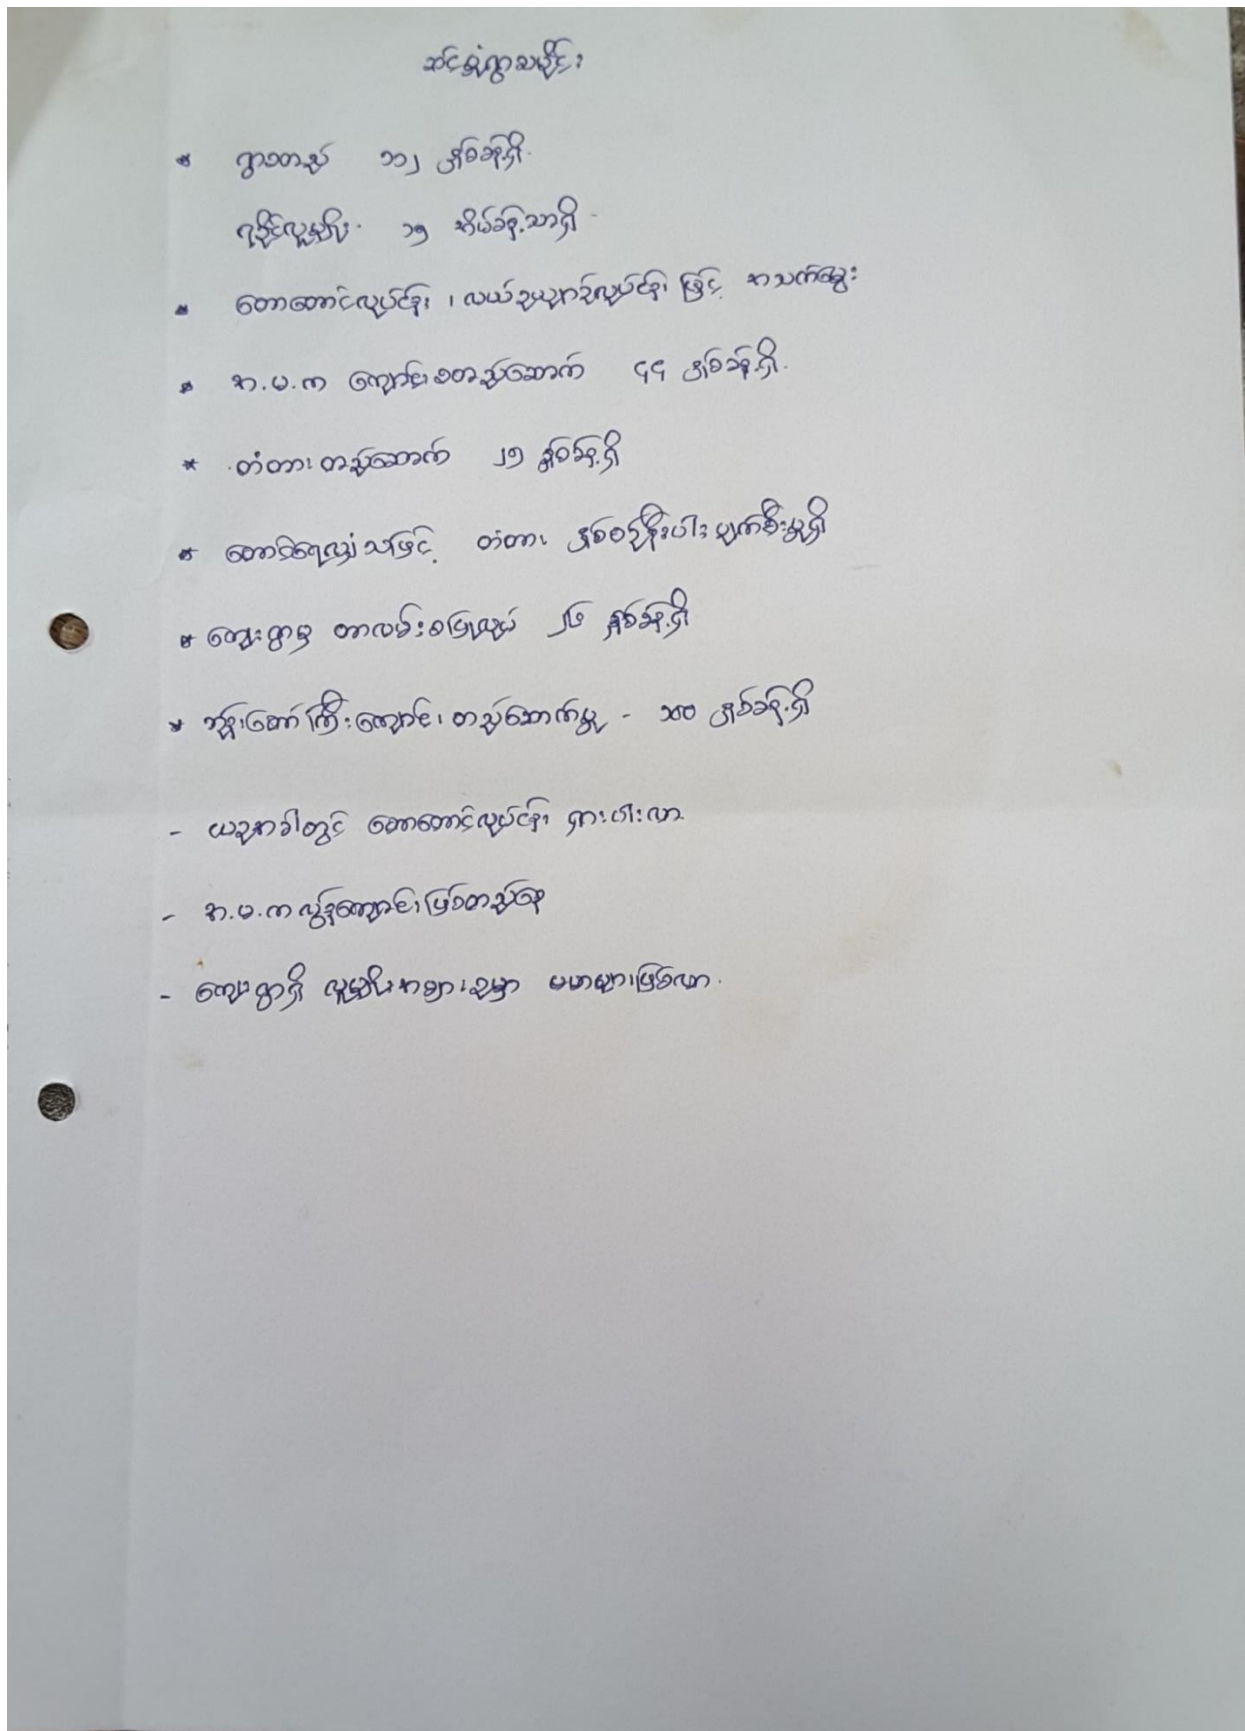 ဆင်ရုံရွာသမိုင်း
* ရွာတည် ၁၁၂ နှစ်ခန့်ရှိ.
ရခိုင်လူမျိုး ၁၅ အိမ်ခန့်သာရှိ -
* တောတောင်လုပ်ငန်း ၊ လယ်ယာလုပ်ငန်း ဖြင့် အသက်မွေး
* အ.မ.က ကျောင်းစတည်ဆောက် ၄၄ နှစ်ခန့်ရှိ.
* တံတား တည်ဆောက် ၂၅ နှစ်ခန့်ရှိ
* တောင်ရေလျှံသဖြင့် တံတား နှစ်စဉ်နီးပါး ပျက်စီးမှုရှိ
* ကျေးရွာမှ တာလမ်းစပြုလုပ် ၂၆ နှစ်ခန့်ရှိ
* ဘုန်းတော်ကြီးကျောင်း တည်ဆောက်မှု - ၁၀၀ နှစ်ခန့်ရှိ
- ယခုအခါတွင် တောတောင်လုပ်ငန်း ရှားပါးလာ.
- အ.မ.က လွန်ကျောင်း ဖြစ်တည်နေ
- ကျေးရွာရှိ လူမျိုးအများစုမှာ ဗမာများဖြစ်လာ.